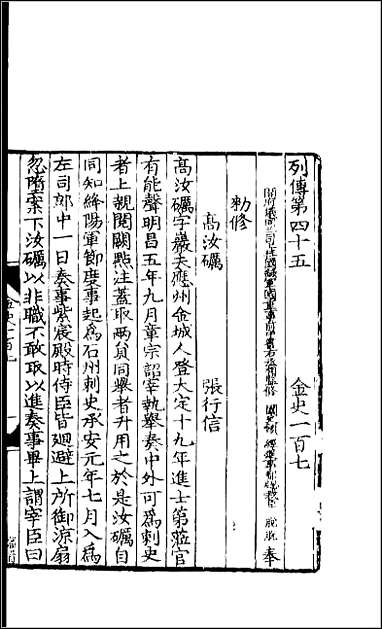 列傳第四十五 金史一百七
開府儀同三司上柱國錄軍國重事前中書右丞相監修 國史領 經筵事都總裁臣 脫脫 奉
勅修
高汝礪 張行信
高汝礪字巖夫應州金城人登大定十九年進士第蒞官
有能聲明昌五年九月章宗詔宰執舉奏中外可爲刺史
者上親閱闕點注蓋取兩貟同舉者升用之於是汝礪自
同知絳陽軍節度事起爲石州刺史承安元年七月入爲
左司郎中一日奏事紫宸殿時侍臣皆廻避上所御涼扇
忽墮案下汝礪以非職不敢取以進奏事畢上謂宰臣曰